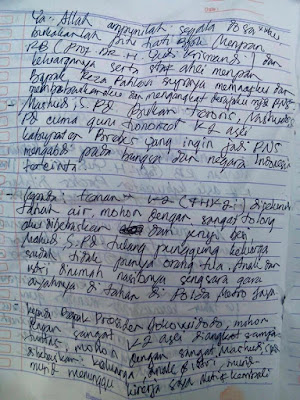 Ya: Allah ampunilah segala Dosa² ku,
bukakanlah pintu hati Bapak Menpan
RB (Prof. DR. H. Yudi Krisnandi) dan
keluarganya serta staf ahli menpan
Bapak Reza Pahlevi supaya memaafkan dan
membebaskanku dan mengangkat derajatku mjd PNS
- Mashudi S.Pd bukan teroris, Mashudi S.
Pd cuma guru honorer K-2 asli
kabupaten Brebes yang ingin jadi PNS
mengabdi pada bangsa dan negara Indonesia
tercinta
- Kepada: teman² K-2 (FHK2I) dipenjuru
tanah air, mohon dengan sangat tolong
aku dibebaskan dari jeruji besi
Mashudi S.Pd tulang punggung keluarga
sudah tidak punya orang tua. Anak dan
istri dirumah nasibnya sengsara gara
ayahnya di tahan di Polda Metro Jaya.
- Kepada Bapak Presiden Joko widodo, mohon
dengan sangat K2 asli diangkat sampai
tuntas, mohon dengan sangat Mashudi, S.Pd
dibebaskan. Keluarga, anak² istri murid-
murid menunggu kinerja saya untuk kembali